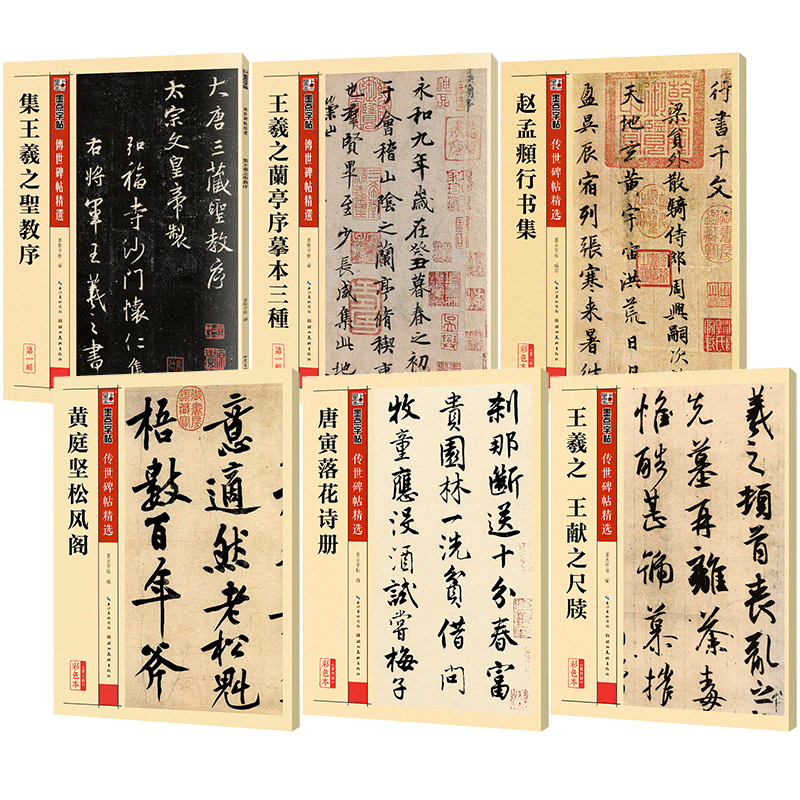 集王羲之聖教序
墨点字帖
傳世碑帖精選
墨點字帖 編
第一輯
大唐三藏聖教序
太宗文皇帝製
弘福寺沙門懷仁集
右將軍王羲之書
王羲之蘭亭序摹本三種
墨点字帖
傳世碑帖精選
墨點字帖 編
第一輯
永和九年歲在癸丑暮春之初
于會稽山陰之蘭亭脩稧事
也羣賢畢至少長咸集此地
崇山
赵孟頫行书集
墨点字帖
传世碑帖精选
彩色本
行書千文
梁員外散騎侍郎周興嗣次
天地玄黃宇宙洪荒日月
盈昃辰宿列張寒来暑往
黄庭坚松风阁
墨点字帖
传世碑帖精选
墨点字帖 编
湖北美术出版社
彩色本
意適然老松魁
梧數百年斧
唐寅落花诗册
墨点字帖
传世碑帖精选
墨点字帖 编
湖北美术出版社
彩色本
刹那斷送十分春富
貴園林一洗貧借問
牧童應没酒試嘗梅子
王羲之 王献之尺牍
墨点字帖
传世碑帖精选
墨点字帖 编
湖北美术出版社
彩色本
羲之頓首喪亂之
先墓再離荼毒
惟酷甚號慕摧